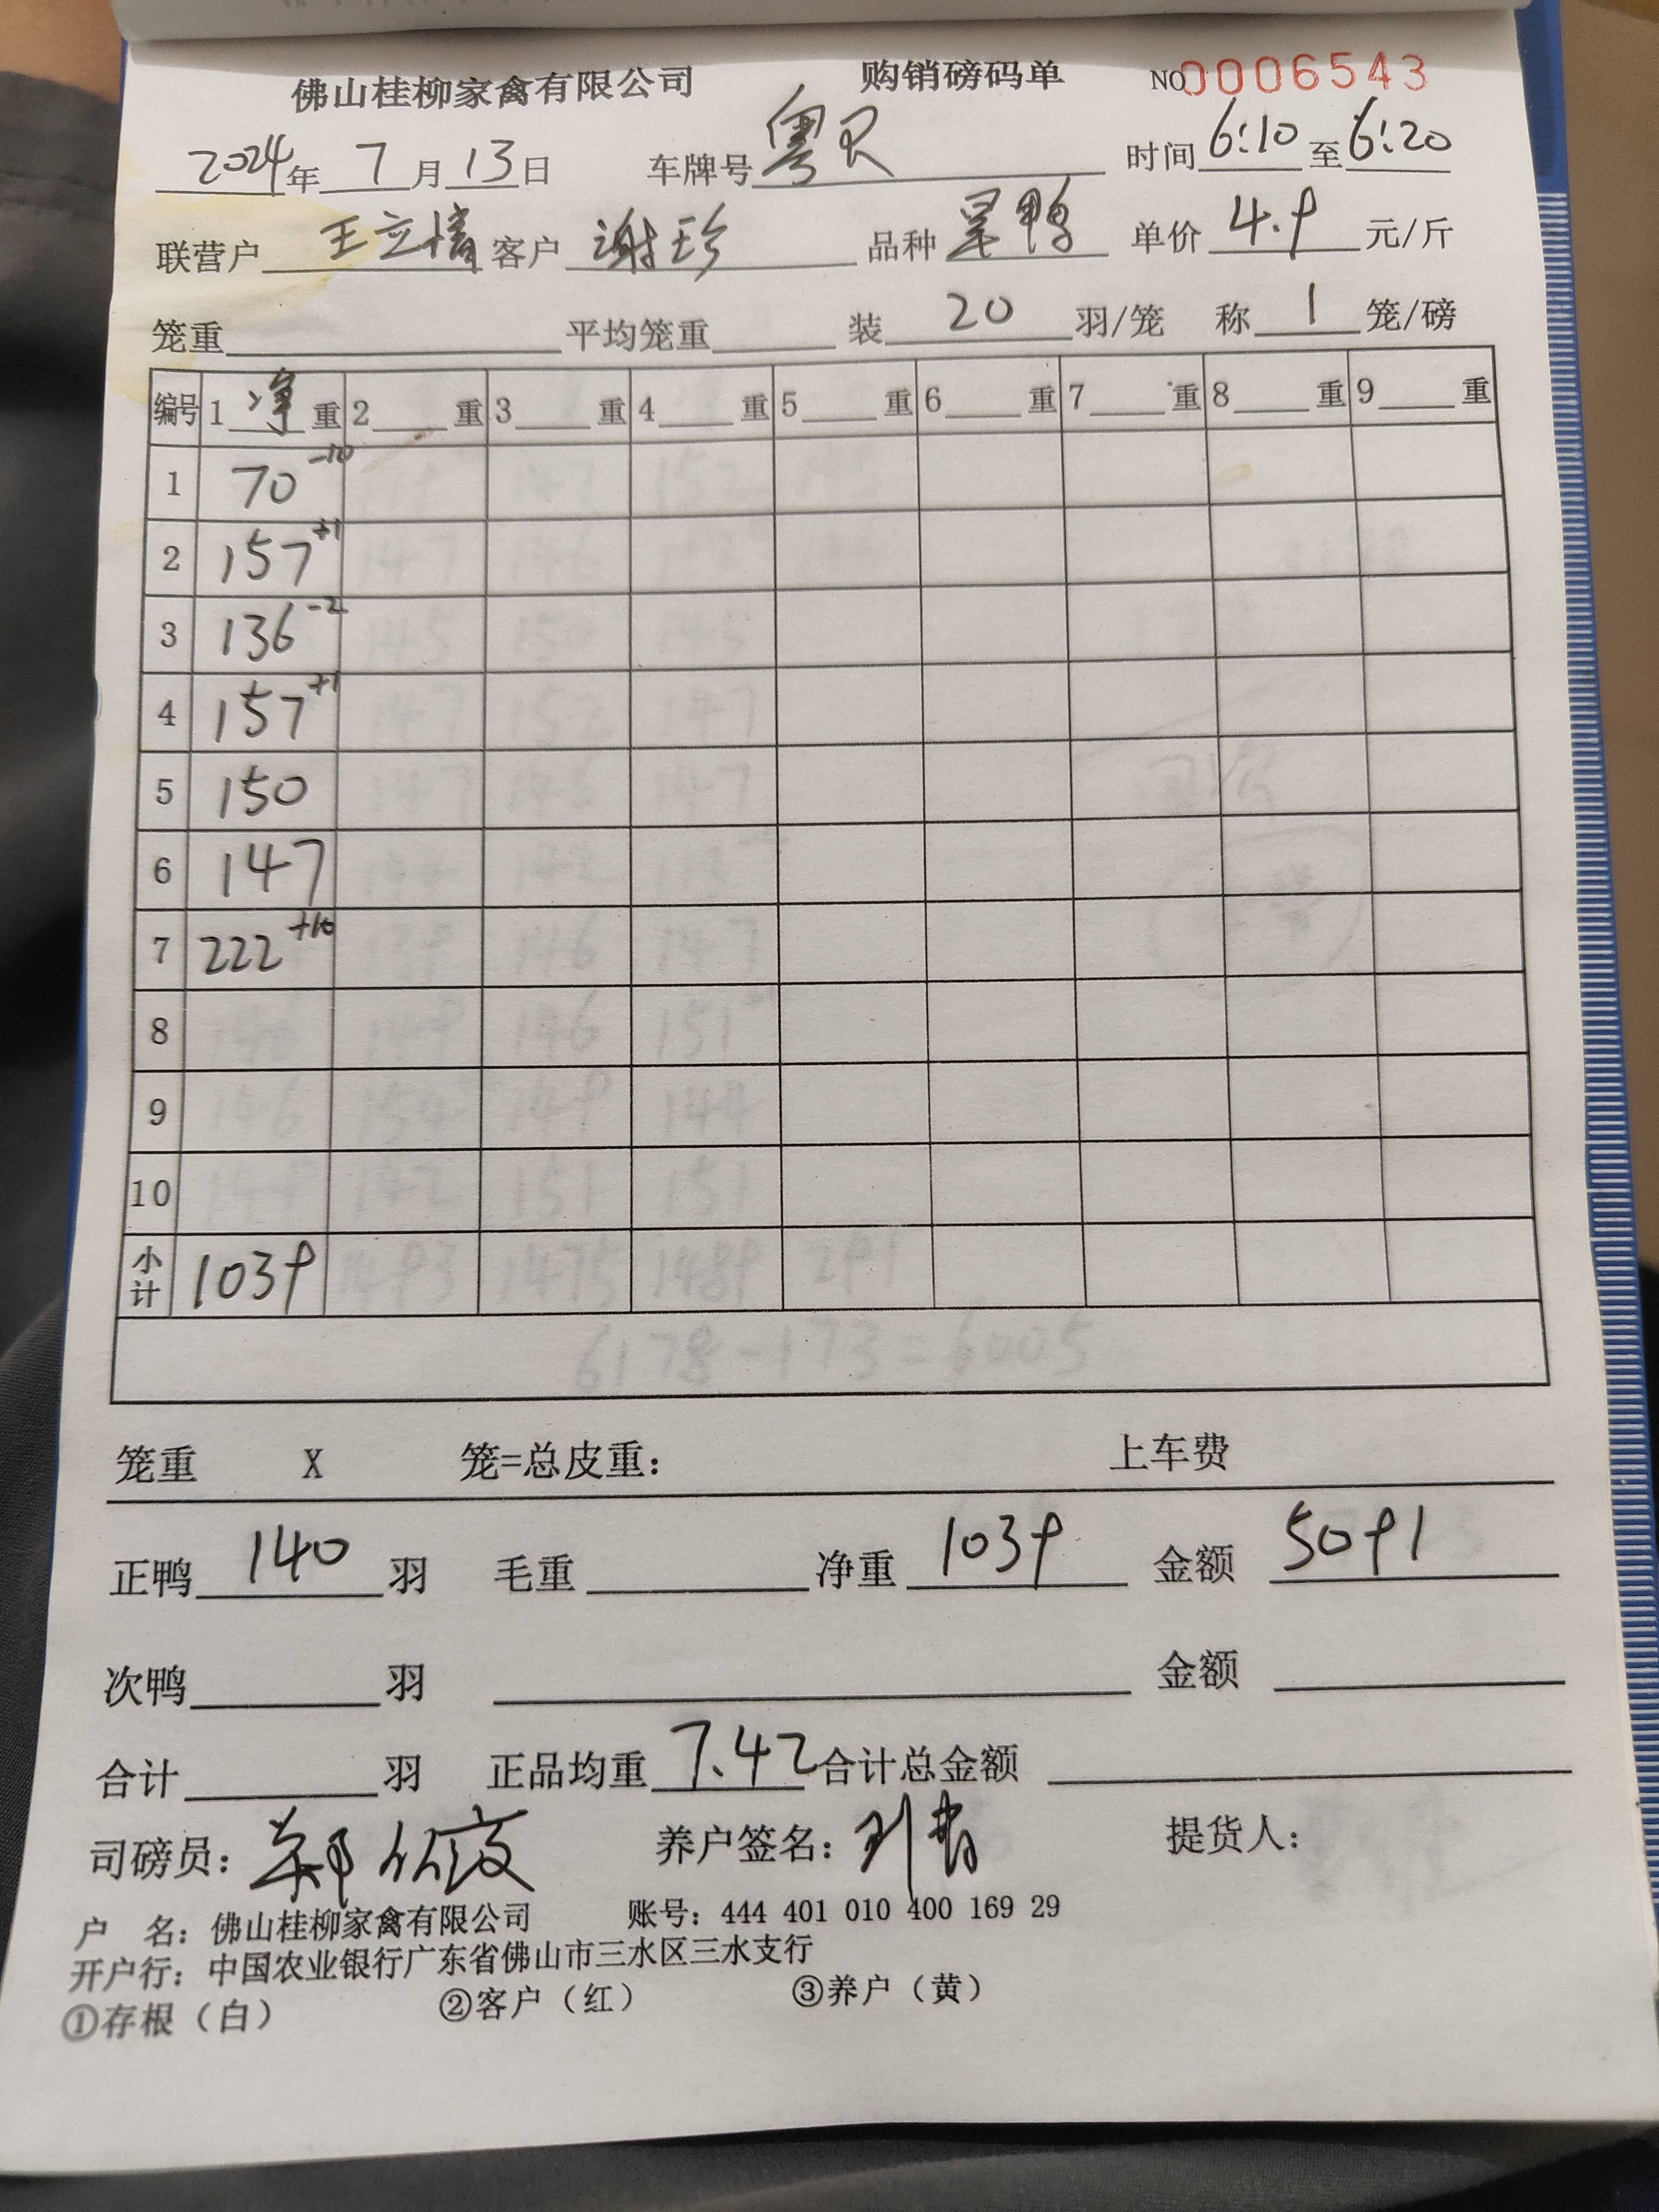 佛山桂柳家禽有限公司 购销磅码单 NO 0006543
2024年 7月 13日 车牌号 粤 时间 6:10 至 6:20
联营户 王立情 客户 谢珍 品种 旱鸭 单价 4.9 元/斤
笼重 平均笼重 装 20 羽/笼 称 1 笼/磅
编号 1 净 重 2 重 3 重 4 重 5 重 6 重 7 重 8 重 9 重
1 70 -10
2 157 +1
3 136 -2
4 157 +1
5 150
6 147
7 222 +10
8
9
10
小计 1039
笼重 X 笼=总皮重: 上车费
正鸭 140 羽 毛重 净重 1039 金额 5091
次鸭 羽 金额
合计 羽 正品均重 7.42 合计总金额
司磅员: 养户签名: 提货人:
户 名: 佛山桂柳家禽有限公司 账号: 444 401 010 400 169 29
开户行: 中国农业银行广东省佛山市三水区三水支行
①存根（白） ②客户（红） ③养户（黄）